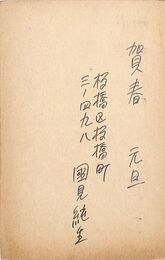 賀春　元旦
板橋区板橋町
三ノ四九八
國見純生